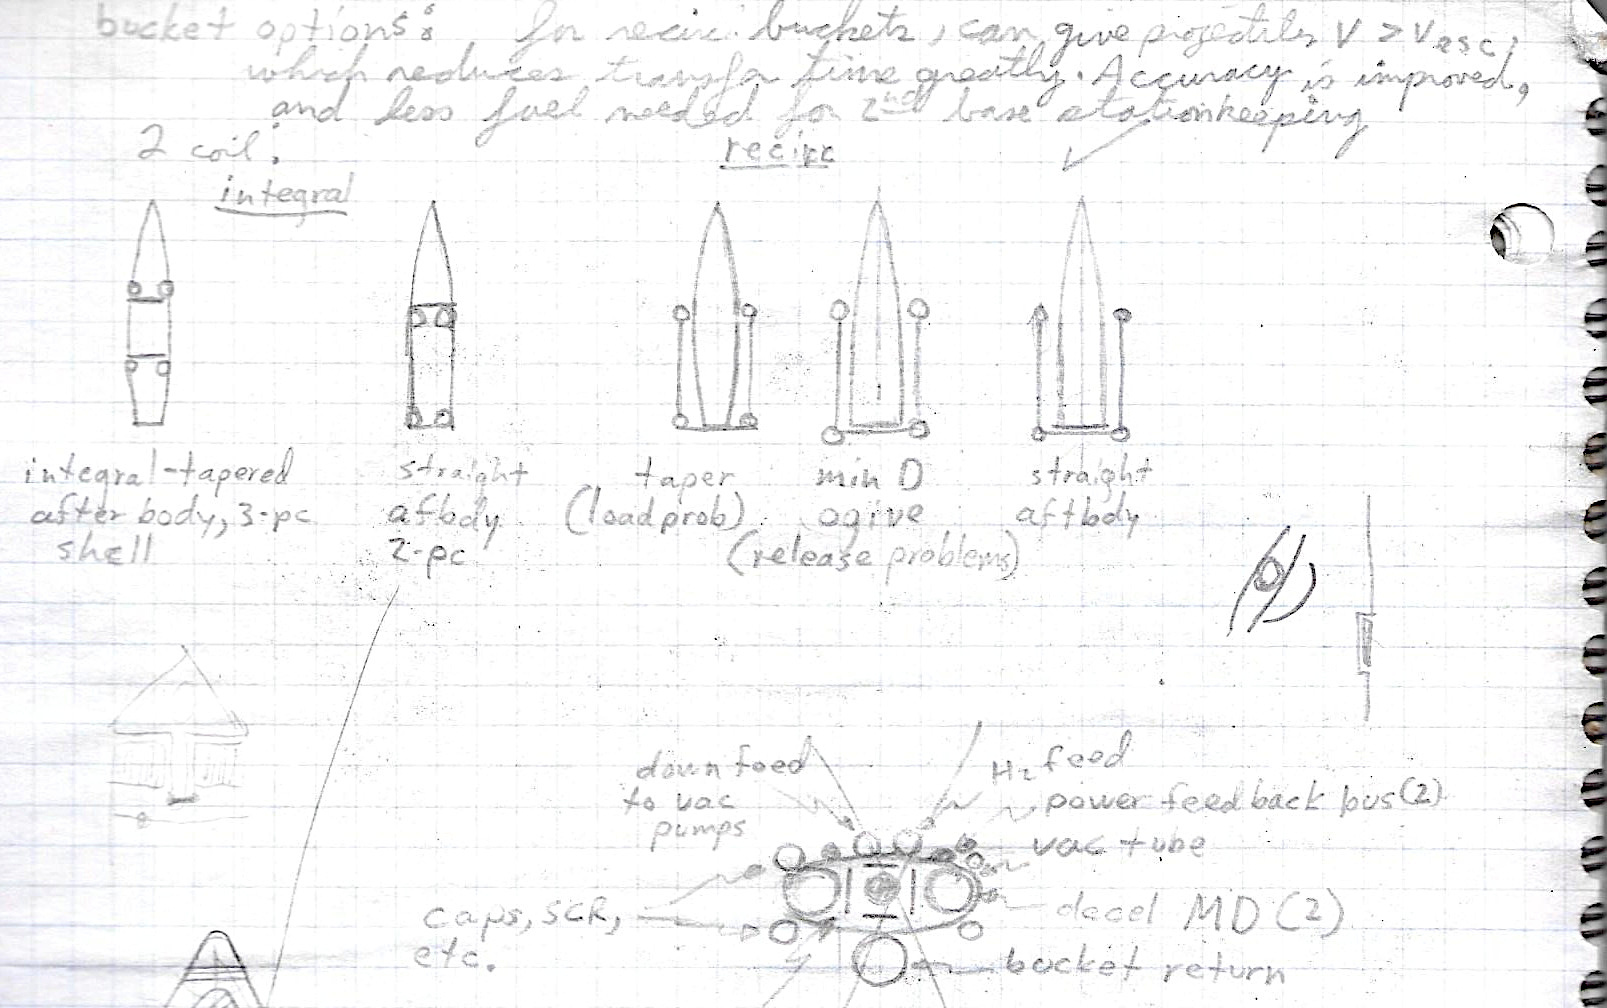 bucket options: for recirc. buckets, can give projectiles V > Vesc,
which reduces transfer time greatly. Accuracy is improved,
and less fuel needed for 2nd base stationkeeping
2 coil:
integral
recirc
integral-tapered
after body, 3-pc
shell
straight
afbody
2-pc
taper
(load prob)
min D
ogive
(release problems)
straight
aftbody
down feed
to vac
pumps
H2 feed
power feedback bus(2)
vac tube
caps, SCR,
etc.
decel MD (2)
bucket return